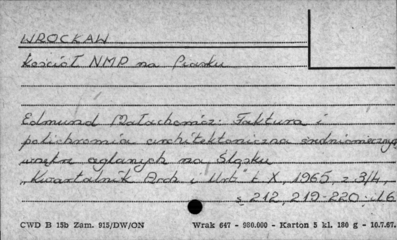 WROCŁAW
Kościół NMP na Piasku
Edmund Małachowicz: Faktura i
polichromia architektoniczna średniowiecznych
wnętrz ceglanych na Śląsku
„Kwartalnik Arch. i Urb" t. X, 1965, z. 3/4,
s. 212, 219-220. il. 6
CWD B 15b Zam. 915/DW/ON Wrak 647 - 980.000 - Karton 5 kl. 180 g - 10.7.67.